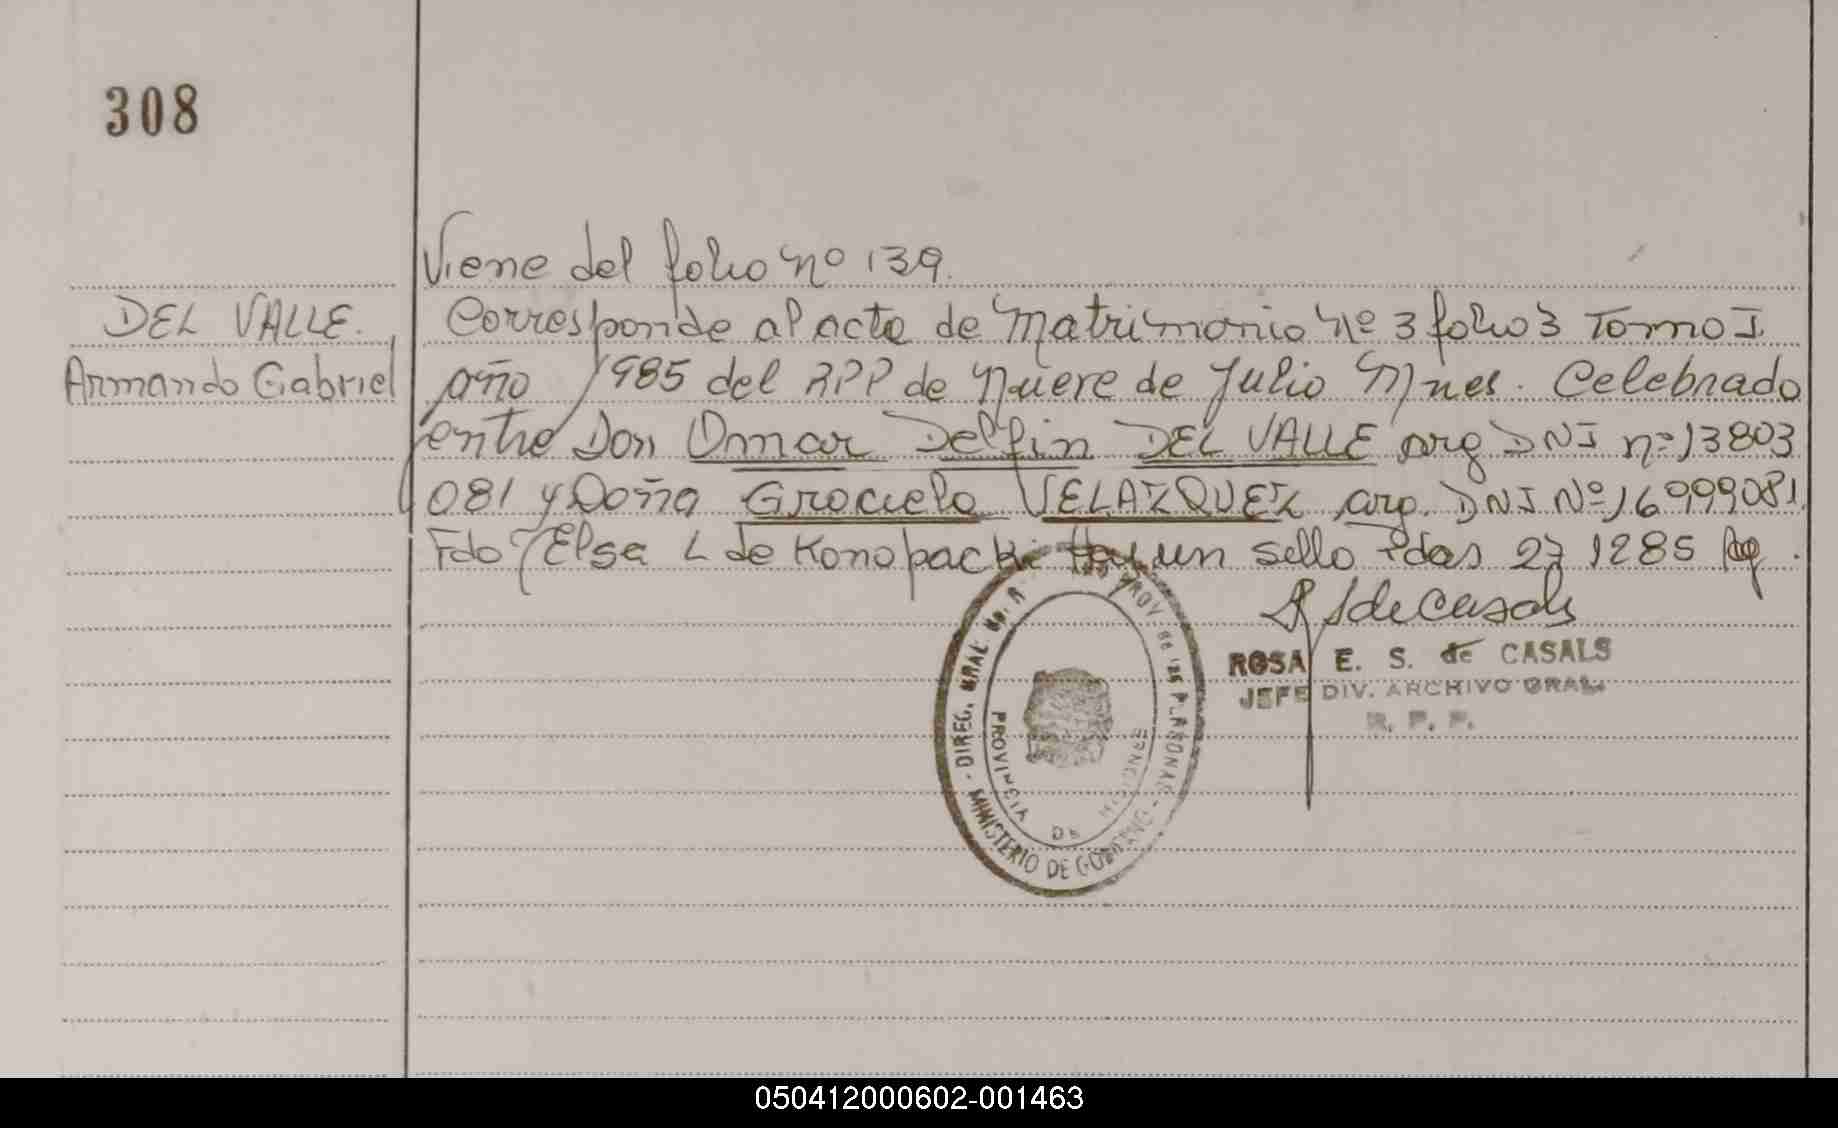 308
Viene del folio nº 139.
DEL VALLE.
Armando Gabriel
Corresponde al acta de Matrimonio Nº 3 folio 3 Tomo I
año 1985 del RPP de Nueve de Julio Mnes. Celebrado
entre Don Omar Delfin DEL VALLE arg DNI nº 13803
081 y Doña Graciela VELAZQUEZ arg. DNI Nº 16999081
Fdo Elsa L de Konopacki Hay un sello Pdas 27 1285
ROSA E. S. de CASALS
JEFE DIV. ARCHIVO GRAL.
R. P. P.
DIREC. GRAL. PROV. DE LAS PERSONAS
MINISTERIO DE GOBIERNO
PROVINCIA DE MISIONES
050412000602-001463